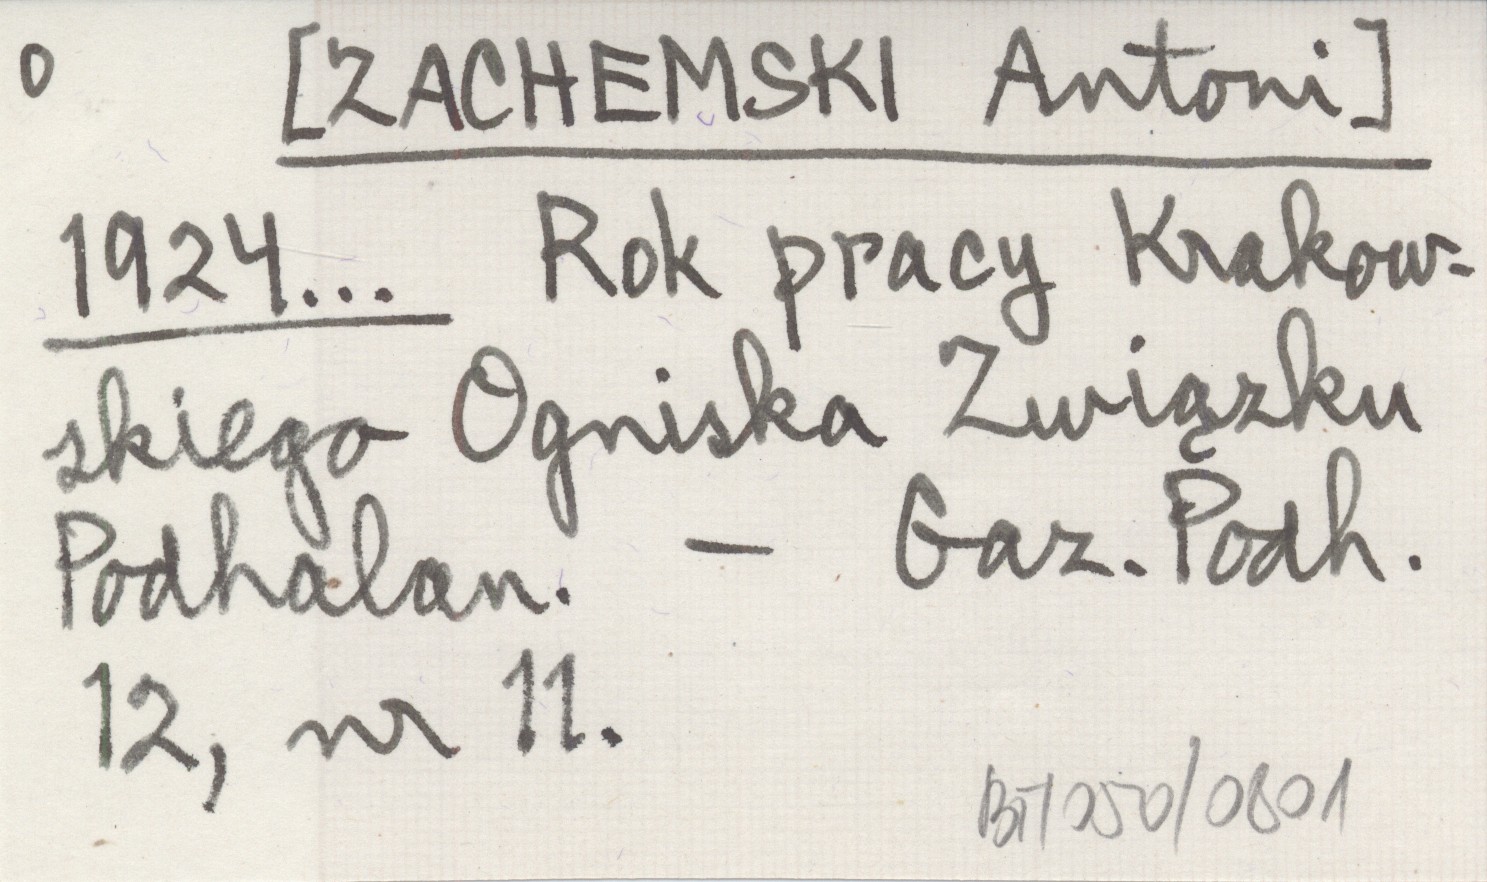 0 [ZACHEMSKI Antoni]
1924... Rok pracy Krakow-
skiego Ogniska Związku
Podhalan. — Gaz. Podh.
12, nr 11.